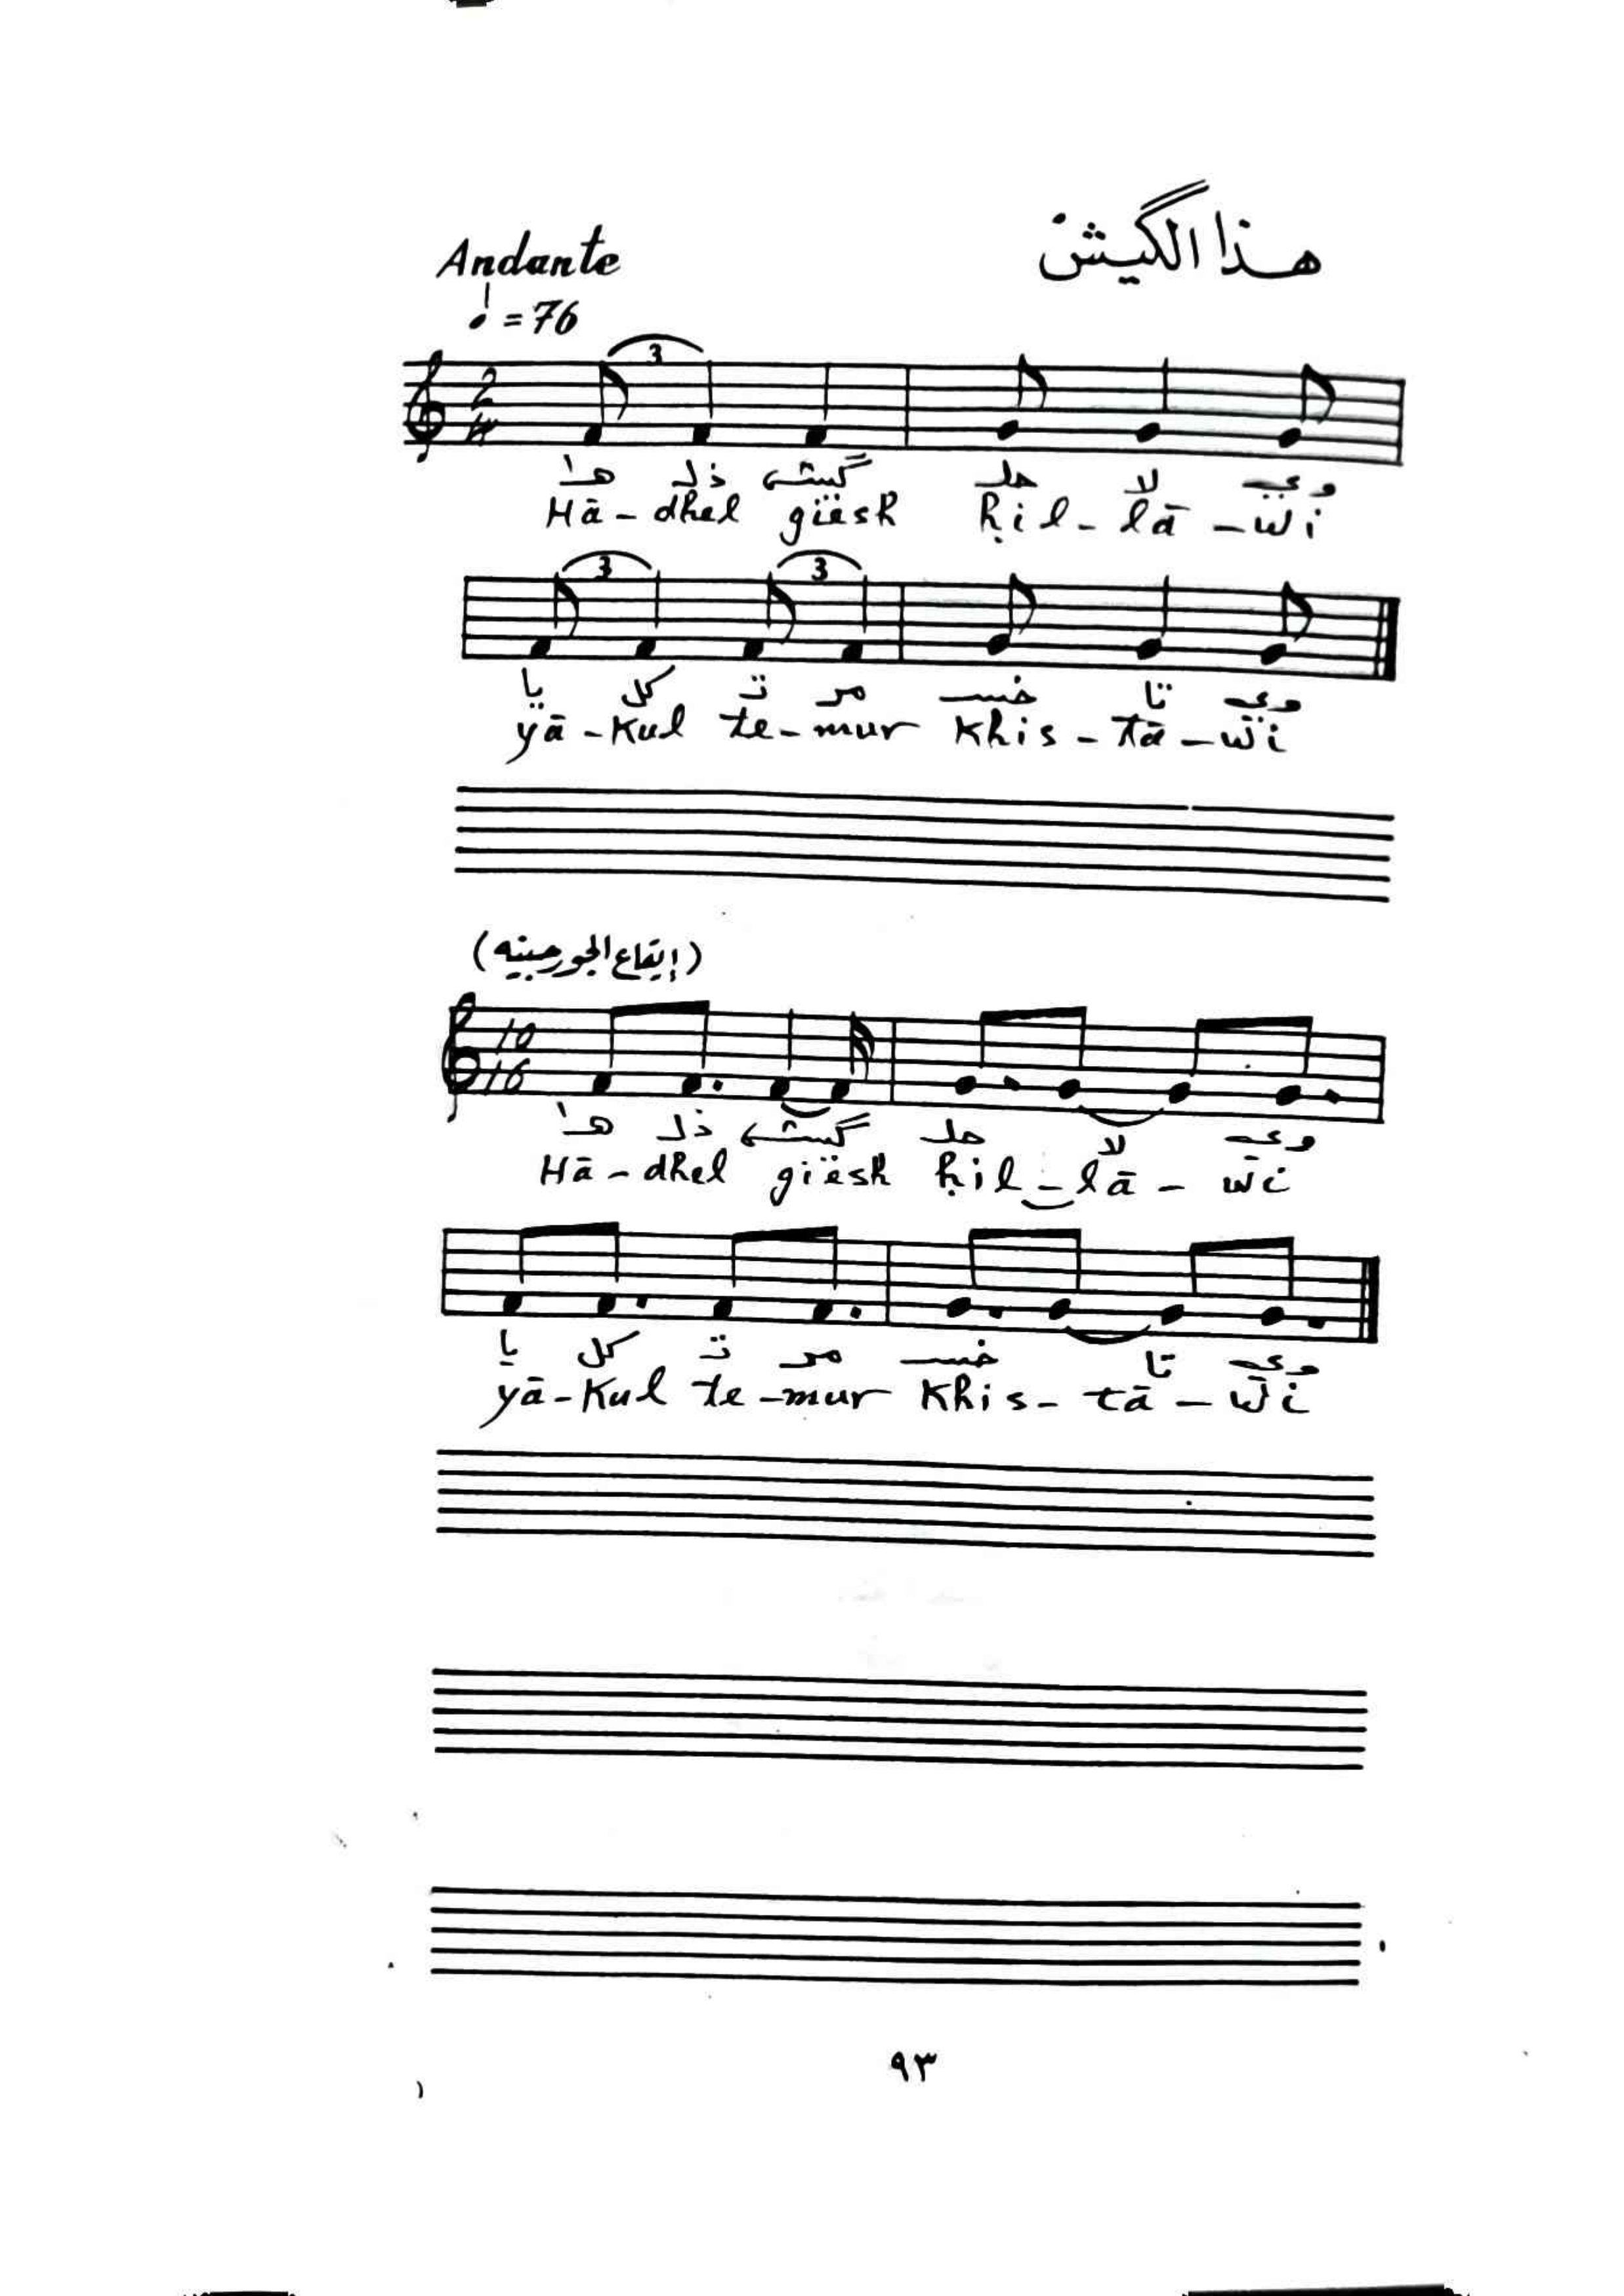 هذا الگيش
Andante
♩ = 76
3
2
4
ها ذلـ گيش حلـ لا وي
Hā - dhel giësh ḥil - lā - wi
3 3
يا كل تـ مر خسـ تا وي
yā - Kul te - mur Khis - tā - wi
(إيقاع الجورجينيه)
10
16
ها ذلـ گيش حلـ لا وي
Hā - dhel giësh ḥil - lā - wi
يا كل تـ مر خسـ تا وي
yā - Kul te - mur Khis - tā - wi
٩٣